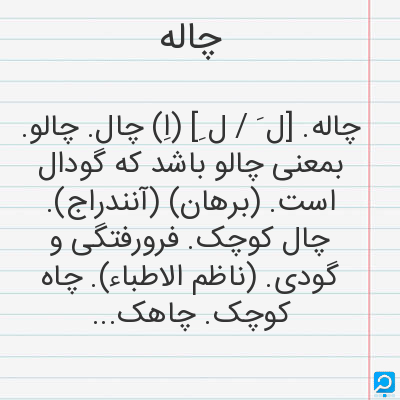 چاله
چاله. [ل َ / ل ِ] (اِ) چال. چالو.
بمعنی چالو باشد که گودال
است. (برهان) (آنندراج).
چال کوچک. فرورفتگی و
گودی. (ناظم الاطباء). چاه
کوچک. چاهک...